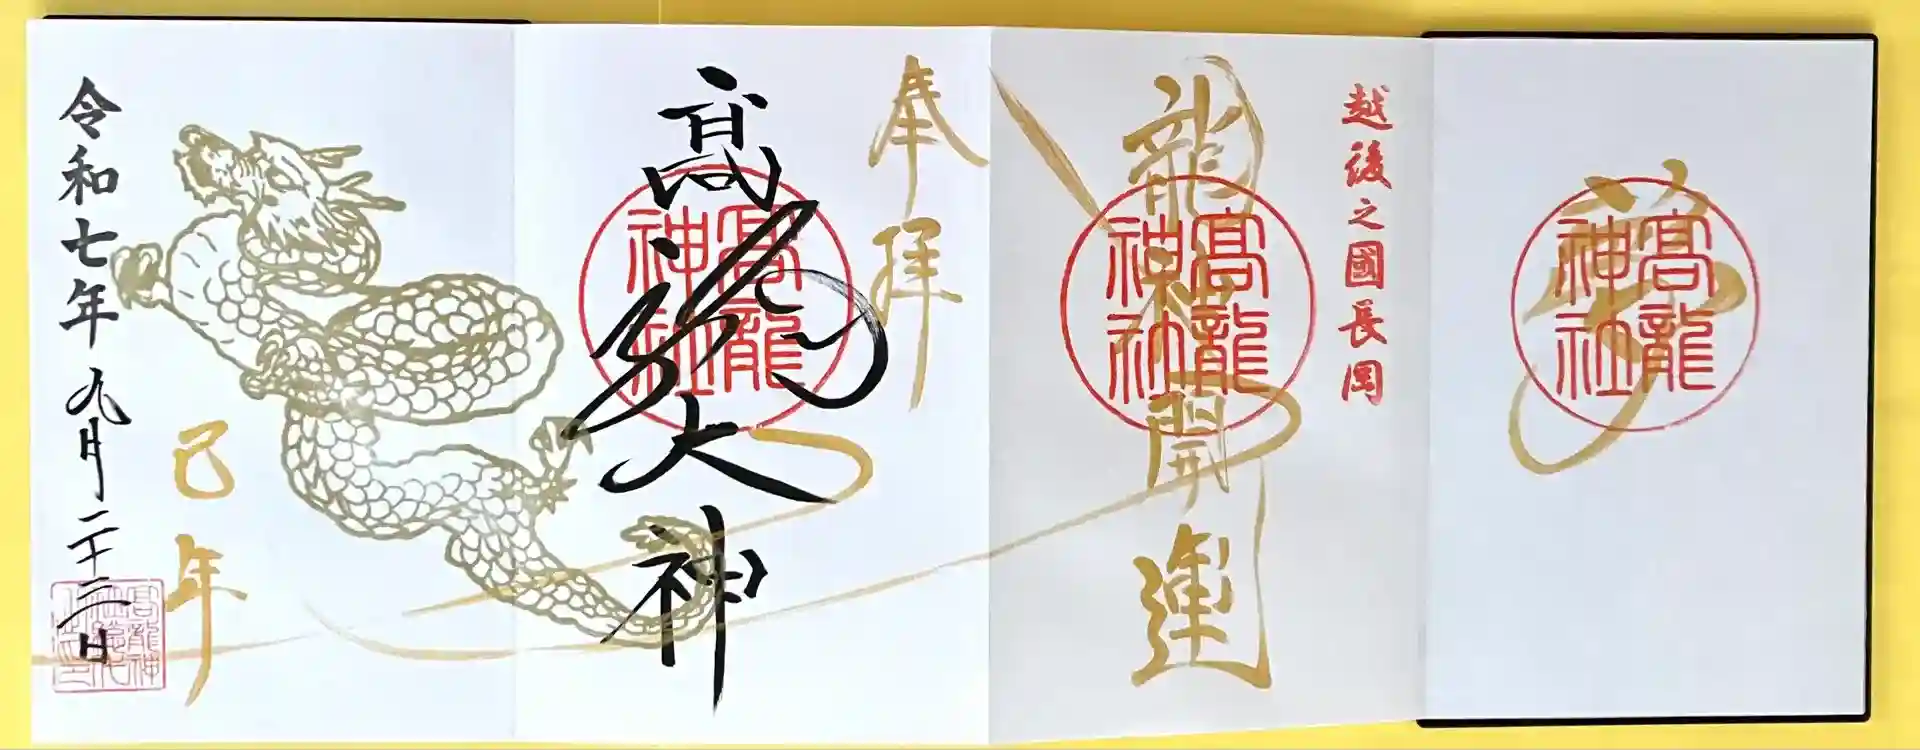 夢
高龍神社
越後之國長岡
龍 開運
高龍神社
奉拝
髙龍大神
高龍神社
巳年
令和七年 九月二十三日